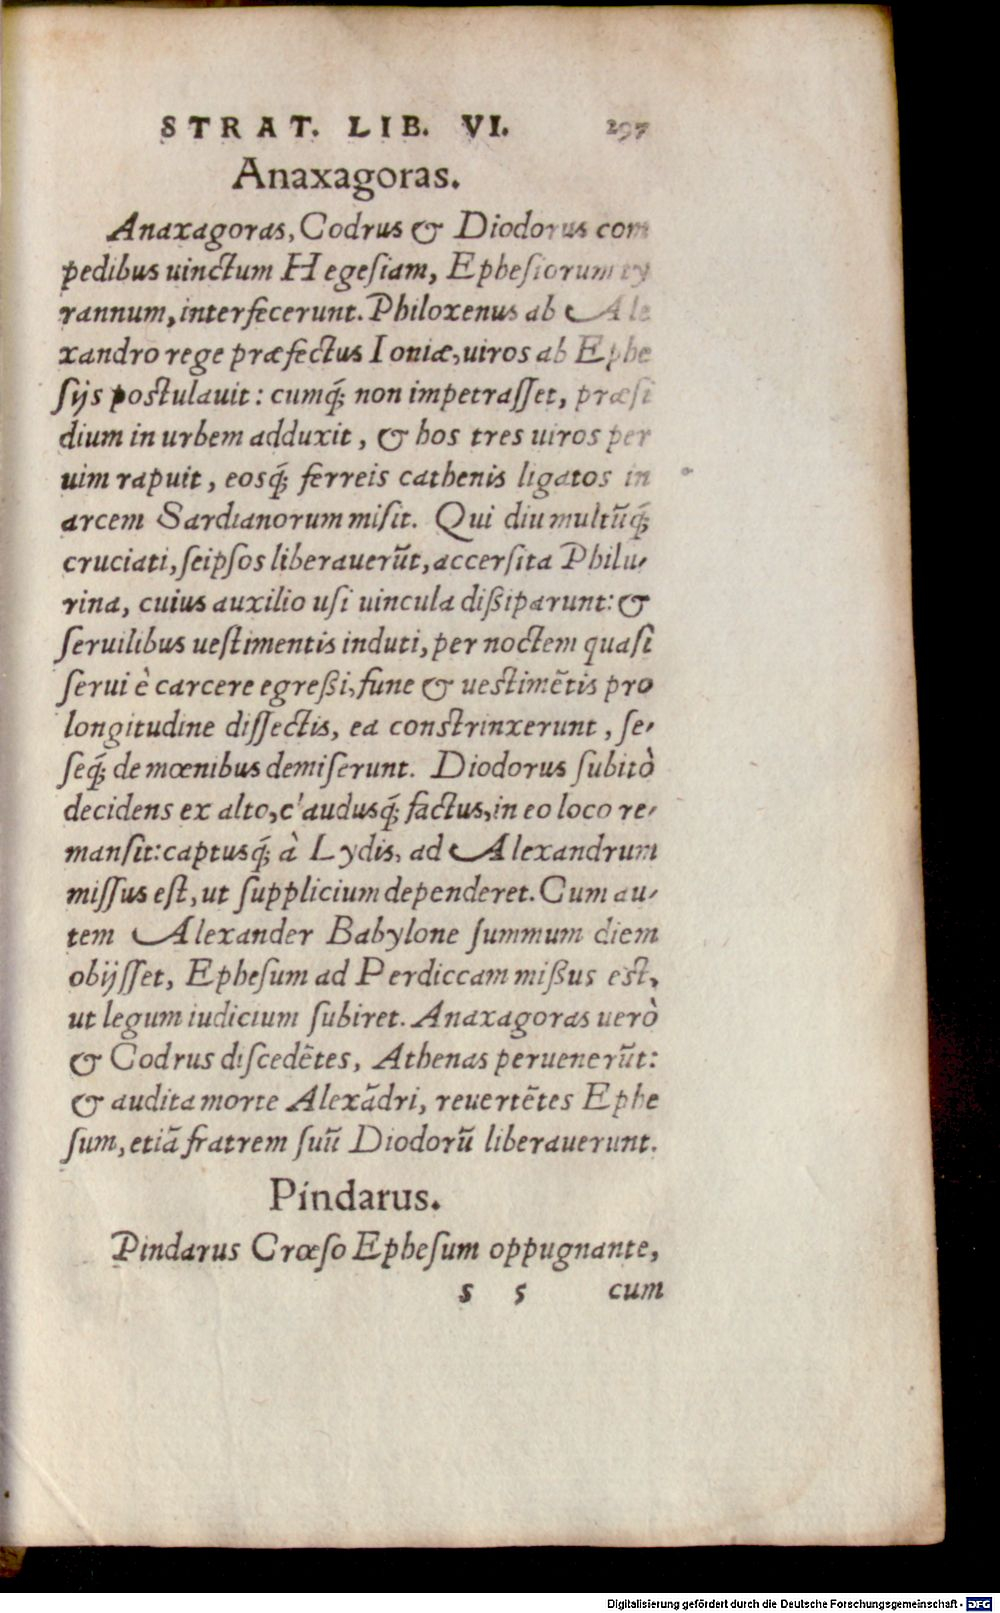 STRAT. LIB. VI. 297
Anaxagoras.
Anaxagoras, Codrus & Diodorus com
pedibus uinctum Hegesiam, Ephesiorum ty
rannum, interfecerunt. Philoxenus ab Ale
xandro rege præfectus Ioniæ, uiros ab Ephe
sijs postulauit: cumq́; non impetrasset, præsi
dium in urbem adduxit, & hos tres uiros per
uim rapuit, eosq́; ferreis cathenis ligatos in
arcem Sardianorum misit. Qui diu multũq́;
cruciati, seipsos liberauerũt, accersita Philu-
rina, cuius auxilio usi uincula dißiparunt: &
seruilibus uestimentis induti, per noctem quasi
serui è carcere egreßi, fune & uestimẽtis pro
longitudine dissectis, ea constrinxerunt, se-
seq́; de mœnibus demiserunt. Diodorus subitò
decidens ex alto, c'audusq́; factus, in eo loco re-
mansit: captusq́; à Lydis, ad Alexandrum
missus est, ut supplicium dependeret. Cum au-
tem Alexander Babylone summum diem
obijsset, Ephesum ad Perdiccam mißus est,
ut legum iudicium subiret. Anaxagoras uerò
& Codrus discedẽtes, Athenas peruenerũt:
& audita morte Alexãdri, reuertẽtes Ephe
sum, etiã fratrem suũ Diodorũ liberauerunt.
Pindarus.
Pindarus Crœso Ephesum oppugnante,
s 5 cum
Digitalisierung gefördert durch die Deutsche Forschungsgemeinschaft - DFG